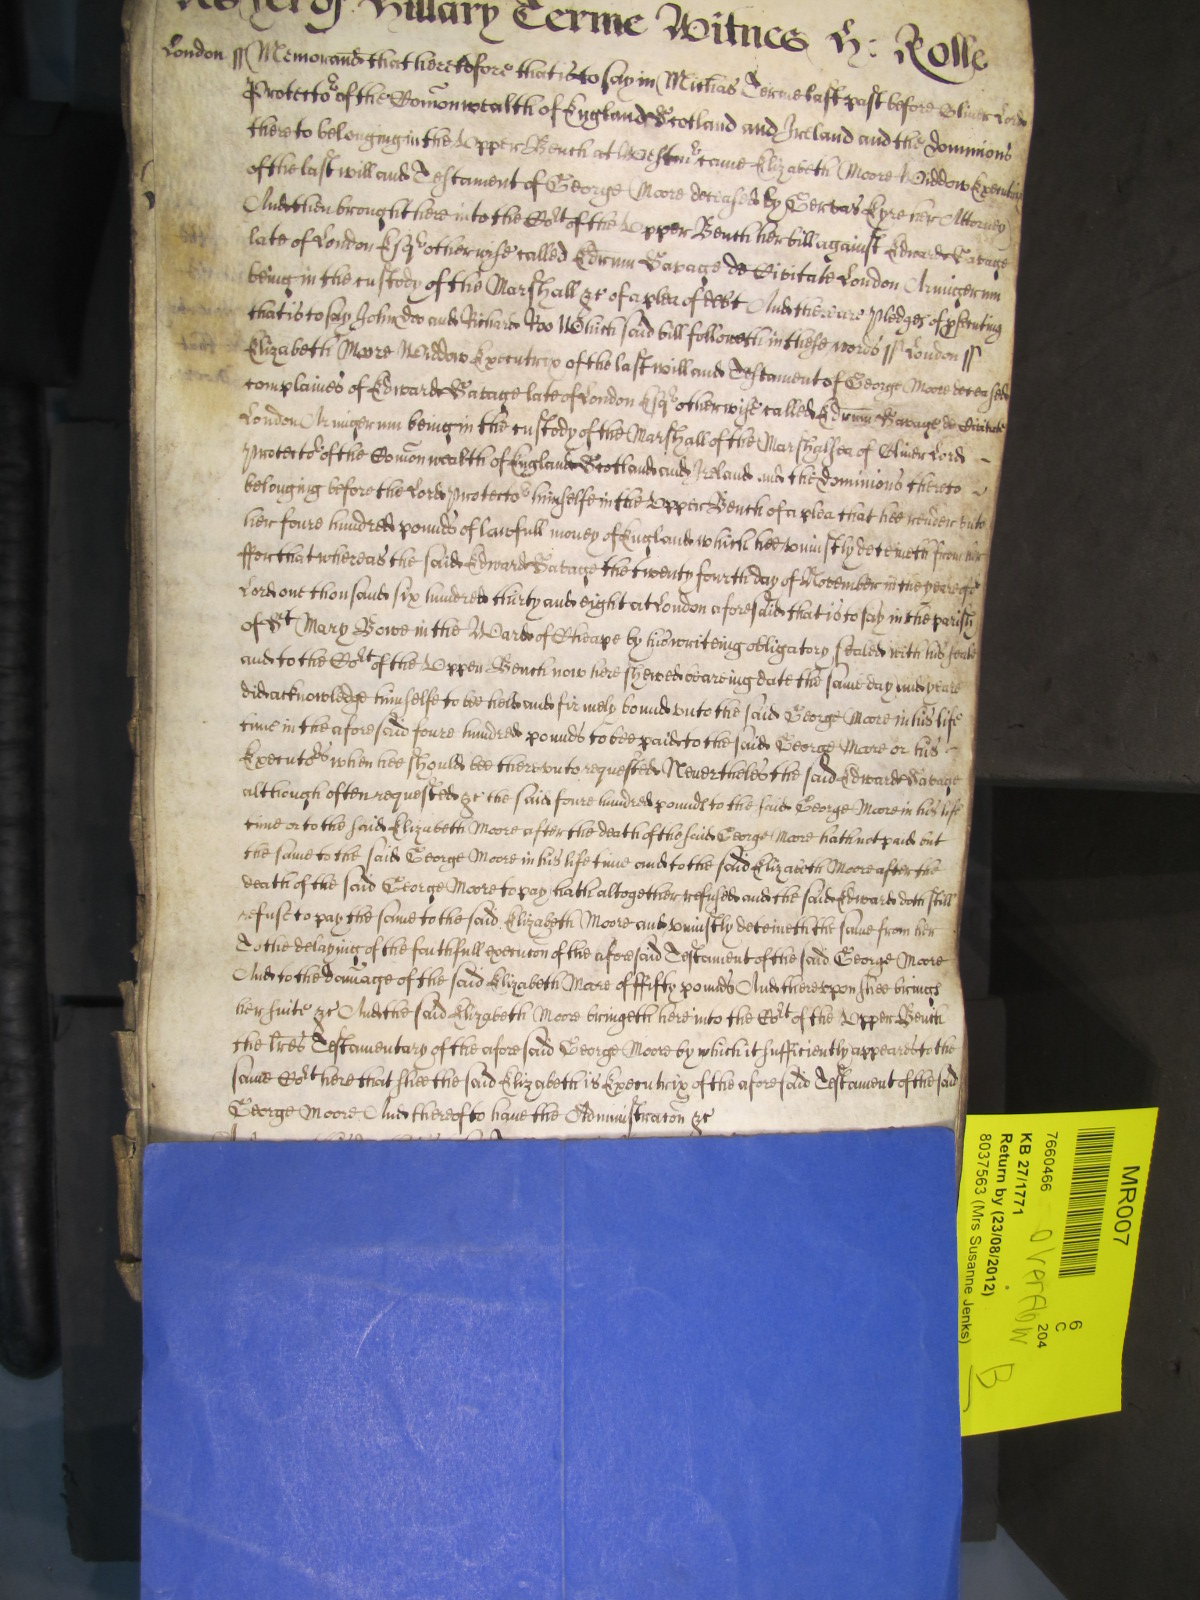 yet of Hillary Terme Witnes H: Rolle
London ss Memorand that heretofore that is to say in Michas Terme last past before Oliver Lord
Protector of the Comonwealth of England Scotland and Ireland and the dominions
thereto belonging in the Upper Bench at Westmr came Elizabeth Moore Widdow Executrix
of the last will and Testament of George Moore deceased by Gervas Eyre her Attorney
And then brought here into the Cort of the Upper Bench her bill against Edward Savage
late of London Esqr otherwise called Edrum Savage de Civitate London Armigerum
being in the custody of the Marshall &c of a plea of debt And there are pledges of psecuting
that is to say John Doo and Richard Roo Which said bill followeth in these words ss London ss
Elizabeth Moore Widdow Executrix of the last will and Testament of George Moore deceased
complaines of Edward Savage late of London Esqr otherwise called Edrum Savage de Civitate
London Armigerum being in the custody of the Marshall of the Marshalsea of Oliver Lord
Protector of the Comonwealth of England Scotland and Ireland and the dominions thereto
belonging before the Lord Protector himselfe in the Upper Bench of a plea that hee render unto
her foure hundred pounds of lawfull money of England which hee uniustly deteineth from her
ffor that whereas the said Edward Savage the twenty fourth day of November in the yeare of or
Lord one thousand six hundred thirty and eight at London aforesaid that is to say in the parish
of St Mary Bowe in the Ward of Cheape by his writeing obligatory sealed with his seale
and to the Cort of the Upper Bench now here shewed beareing date the same day and yeare
did acknowledge himselfe to bee held and firmely bound unto the said George Moore in his life
time in the aforesaid foure hundred pounds to bee paid to the said George Moore or his
Executors when hee should bee thereunto requested Neverthelesse the said Edward Savage
although often requested &c the said foure hundred pounds to the said George Moore in his life
time or to the said Elizabeth Moore after the death of the said George Moore hath not paid but
the same to the said George Moore in his life time and to the said Elizabeth Moore after the
death of the said George Moore to pay hath altogether refused and the said Edward doth still
refuse to pay the same to the said Elizabeth Moore and uniustly deteineth the same from her
To the delaying of the faithfull execucon of the aforesaid Testament of the said George Moore
And to the damage of the said Elizabeth Moore of ffifty pounds And thereupon shee brings
her suite &c And the said Elizabeth Moore bringeth here into the Cort of the Upper Bench
the lres Testamentary of the aforesaid George Moore by which it sufficiently appeares to the
same Cort here that shee the said Elizabeth is Executrix of the aforesaid Testament of the said
George Moore And thereof to have the Administracon &c
MR007
6
C
204
7660466
overflow
KB 27/1771
Return by (23/08/2012)
8037563 (Mrs Susanne Jenks)
B